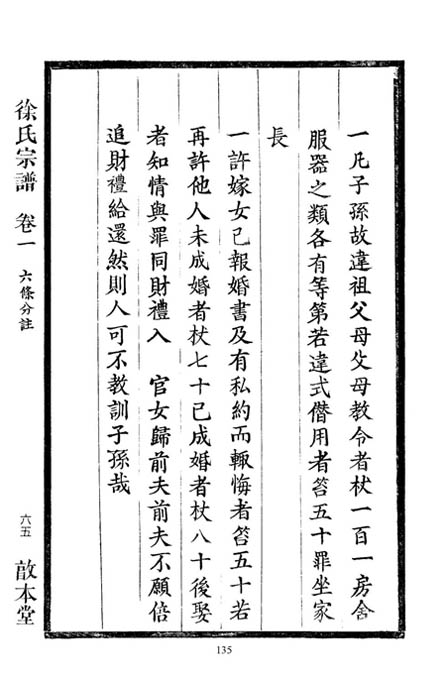 一凡子孫故違祖父母父母教令者杖一百一房舍
服器之類各有等第若違式僭用者笞五十罪坐家
長
一許嫁女已報婚書及有私約而輒悔者笞五十若
再許他人未成婚者杖七十已成婚者杖八十後娶
者知情與罪同財禮入　官女歸前夫前夫不願倍
追財禮給還然則人可不教訓子孫哉
徐氏宗譜　卷一　六條分註　六五　敔本堂
135